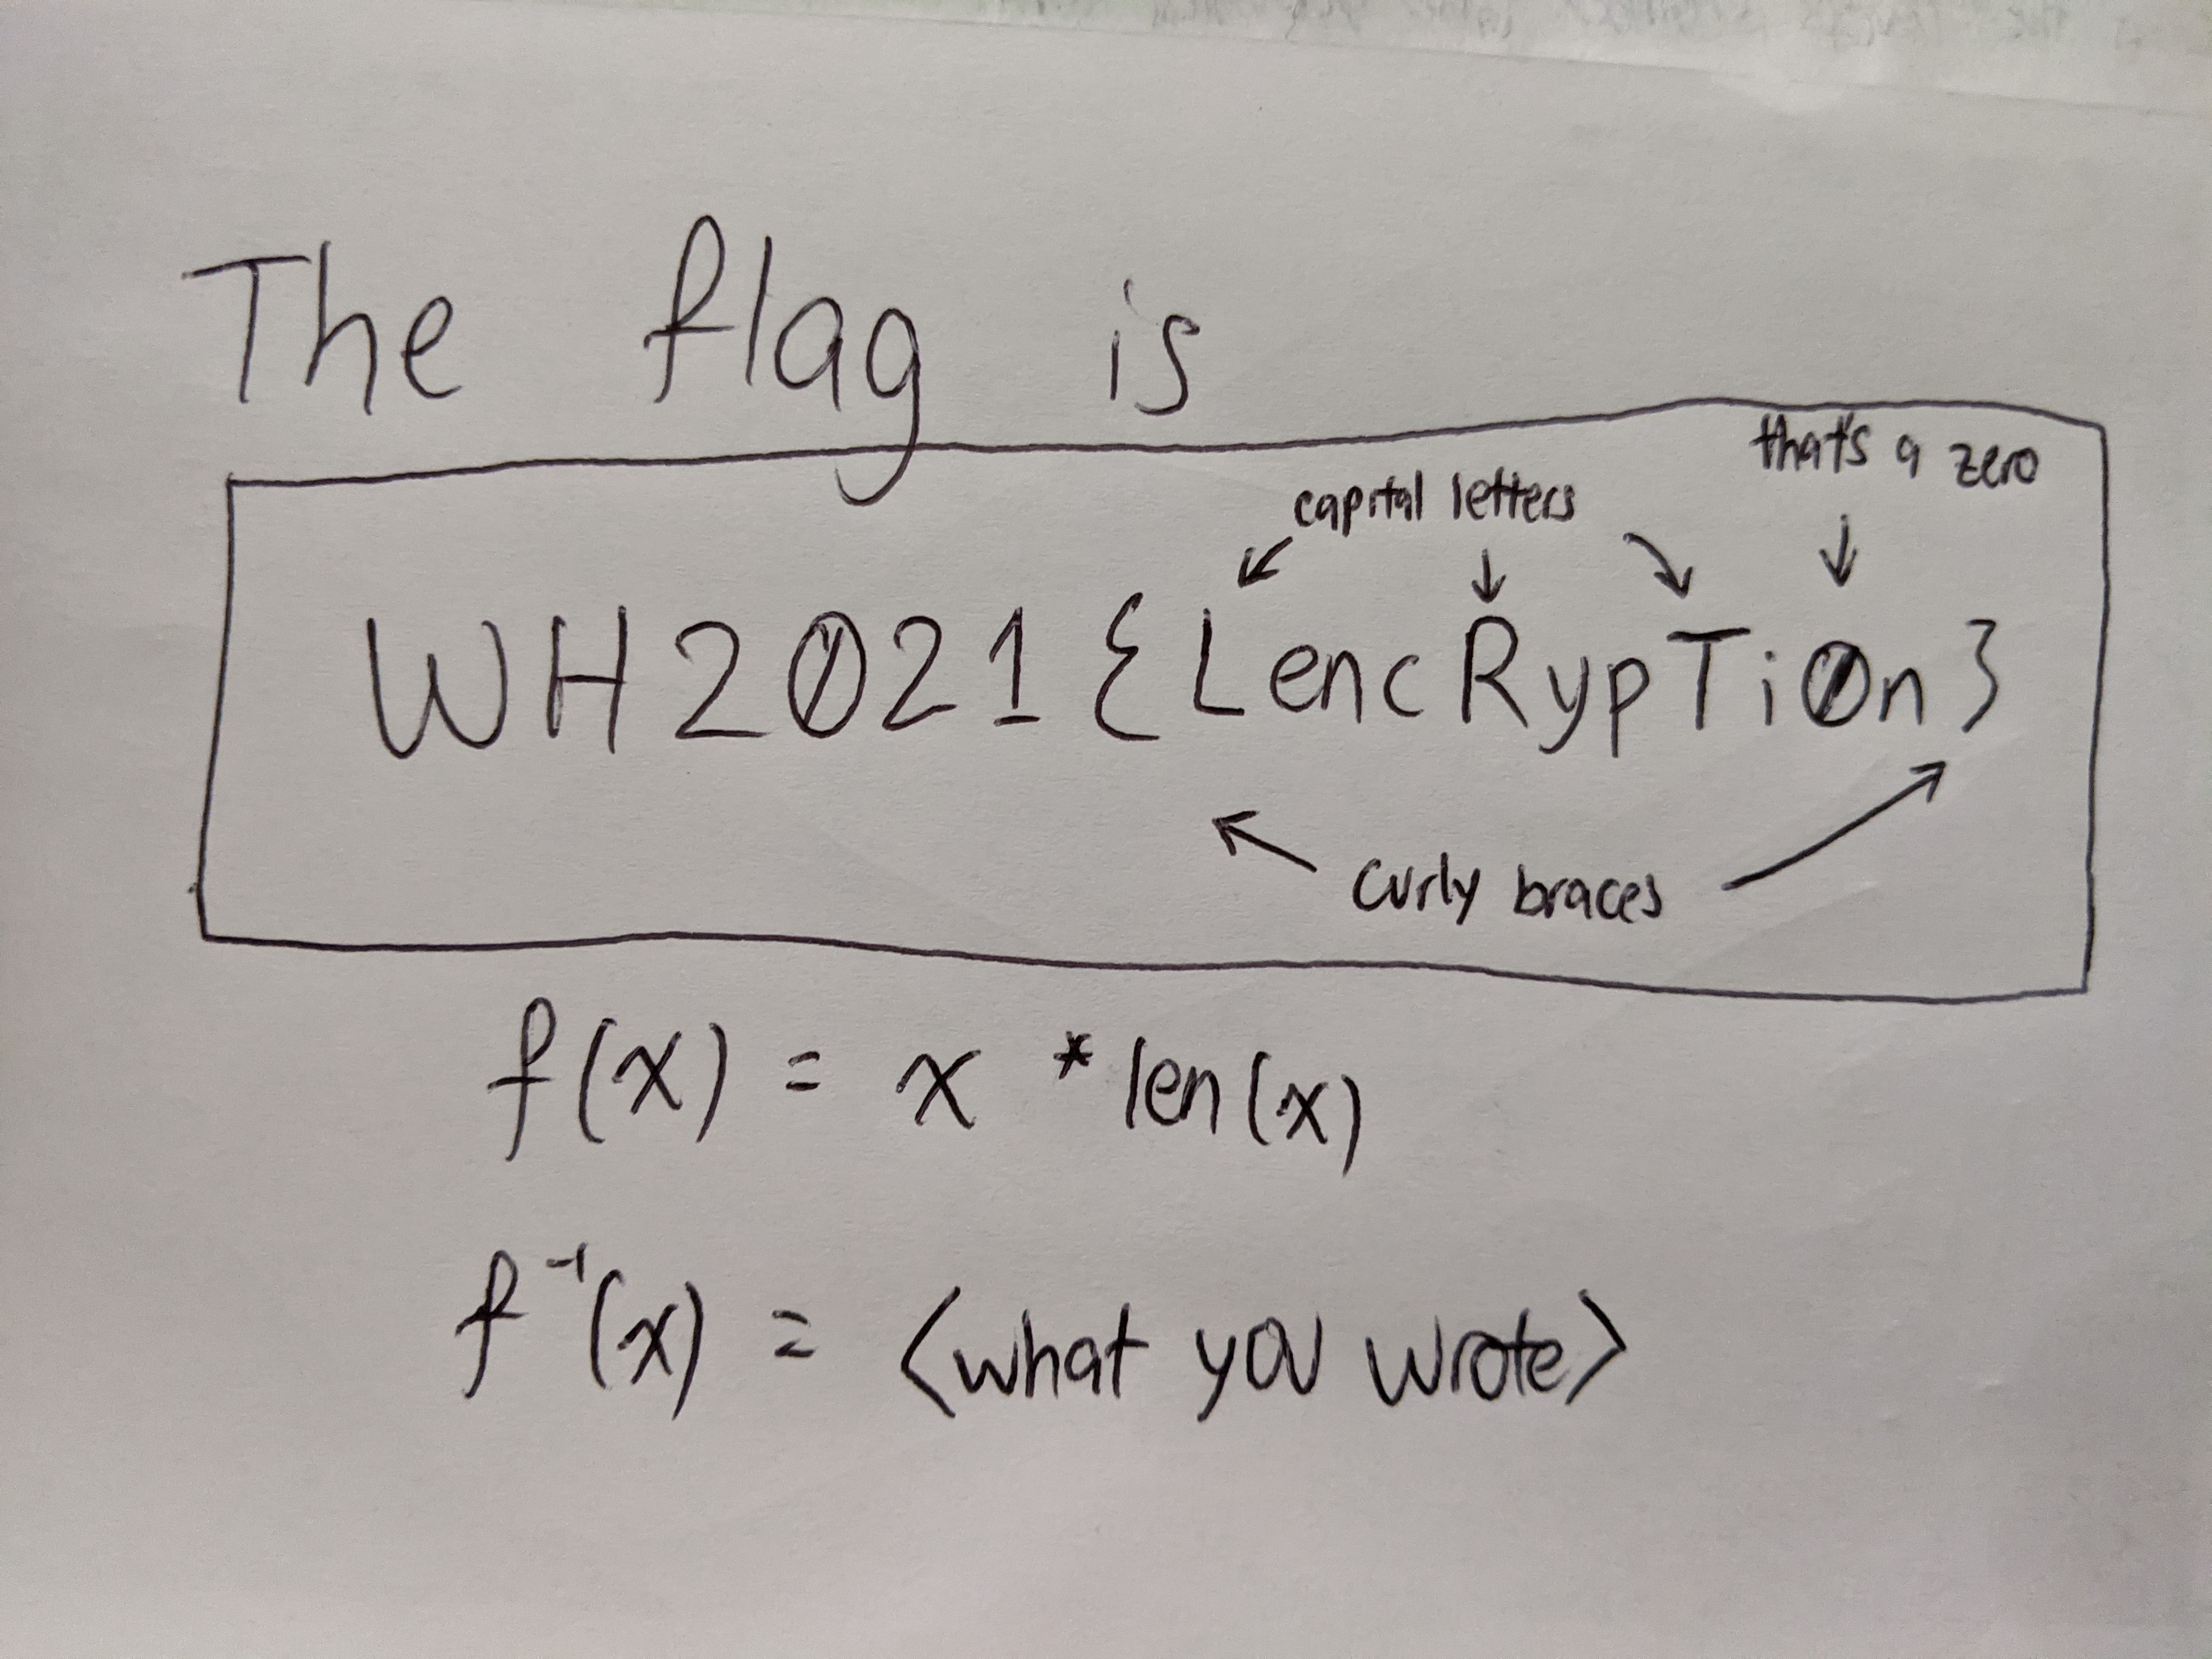 The flag is
that's a zero
capital letters
WH2021{LencRypTi0n}
curly braces
f(x) = x * len(x)
f⁻¹(x) = <what you wrote>